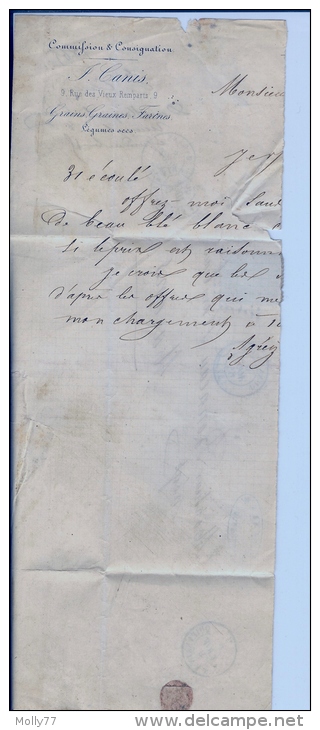 Commission & Consignation
F. Canis
9, Rue des Vieux Remparts, 9
Grains, Graines, Farines,
Légumes secs
Monsieur
31 écoulé
offrez-moi sans
de beau blé blanc
si le prix est raisonn
je crois que les
d'après les offres qui me
mon chargement à
Agréez
Molly77
www.delcampe.net